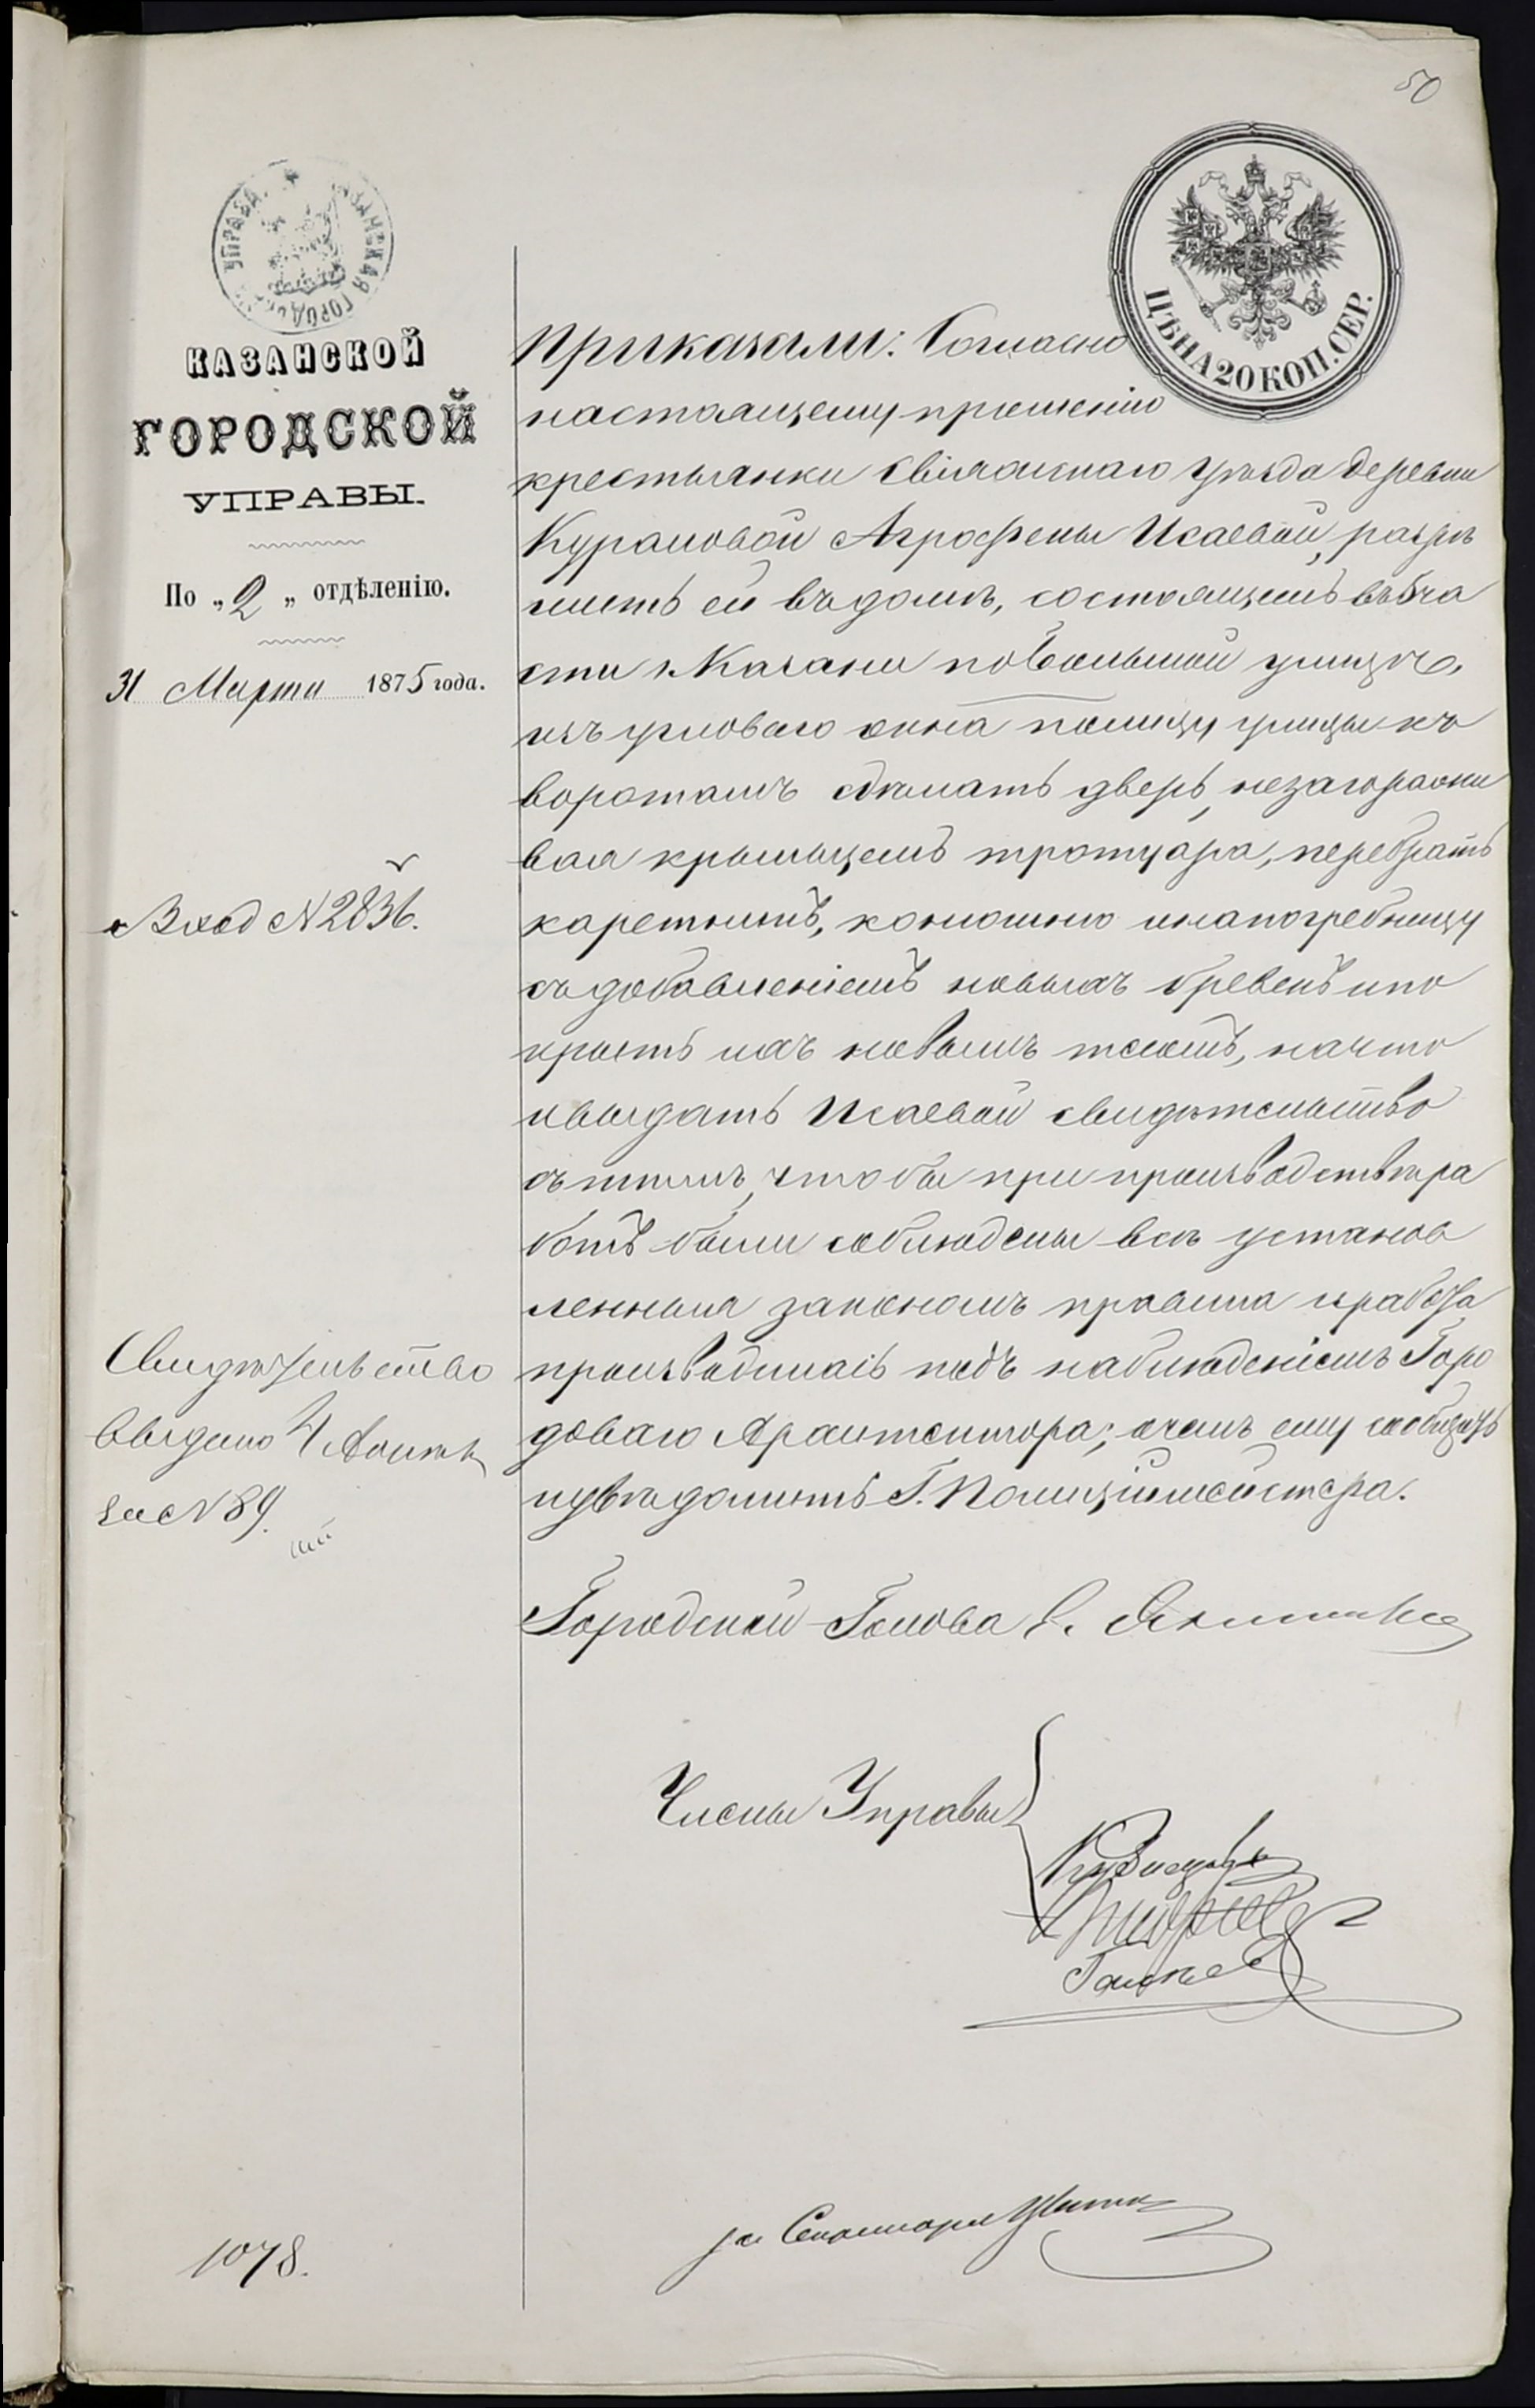 50
КАЗАНСКАЯ ГОРОДСКАЯ УПРАВА
ЦѢНА 20 КОП. СЕР.
КАЗАНСКОЙ
ГОРОДСКОЙ
УПРАВЫ.
По „2„ отдѣленію.
31 Марта 1875 года.
Вход N 2836.
Свидѣтельство
выдано 4 Апрѣл
за N 89.
1078.
Приказали: Согласно
настоящему прошенію
крестьянки Свіяжскаго уѣзда деревни
Курамовой Агрофены Исаевой, разрѣ
шить ей въ домѣ, состоящемъ въ 5 ча
сти г. Казани по Большой улицѣ,
изъ угловаго окна на улицу къ
воротамъ сдѣлать дверь, незагоражи
вая крыльцемъ тротуара, перебрать
каретникъ, конюшню и напогребницу
съ добавленіемъ новыхъ бревенъ и по
крыть ихъ новымъ тесомъ, на что
и выдать Исаевой свидѣтельство
съ тѣмъ, чтобы при производствѣ ра
ботъ были соблюдены всѣ установ
ленныя закономъ правила и работа
производилась подъ наблюденіемъ Горо
доваго Архитектора; о чемъ ему сообщить
и увѣдомить Г. Полиціймейстера.
Городской Голова Е.
Члены Управы
за Секретаря